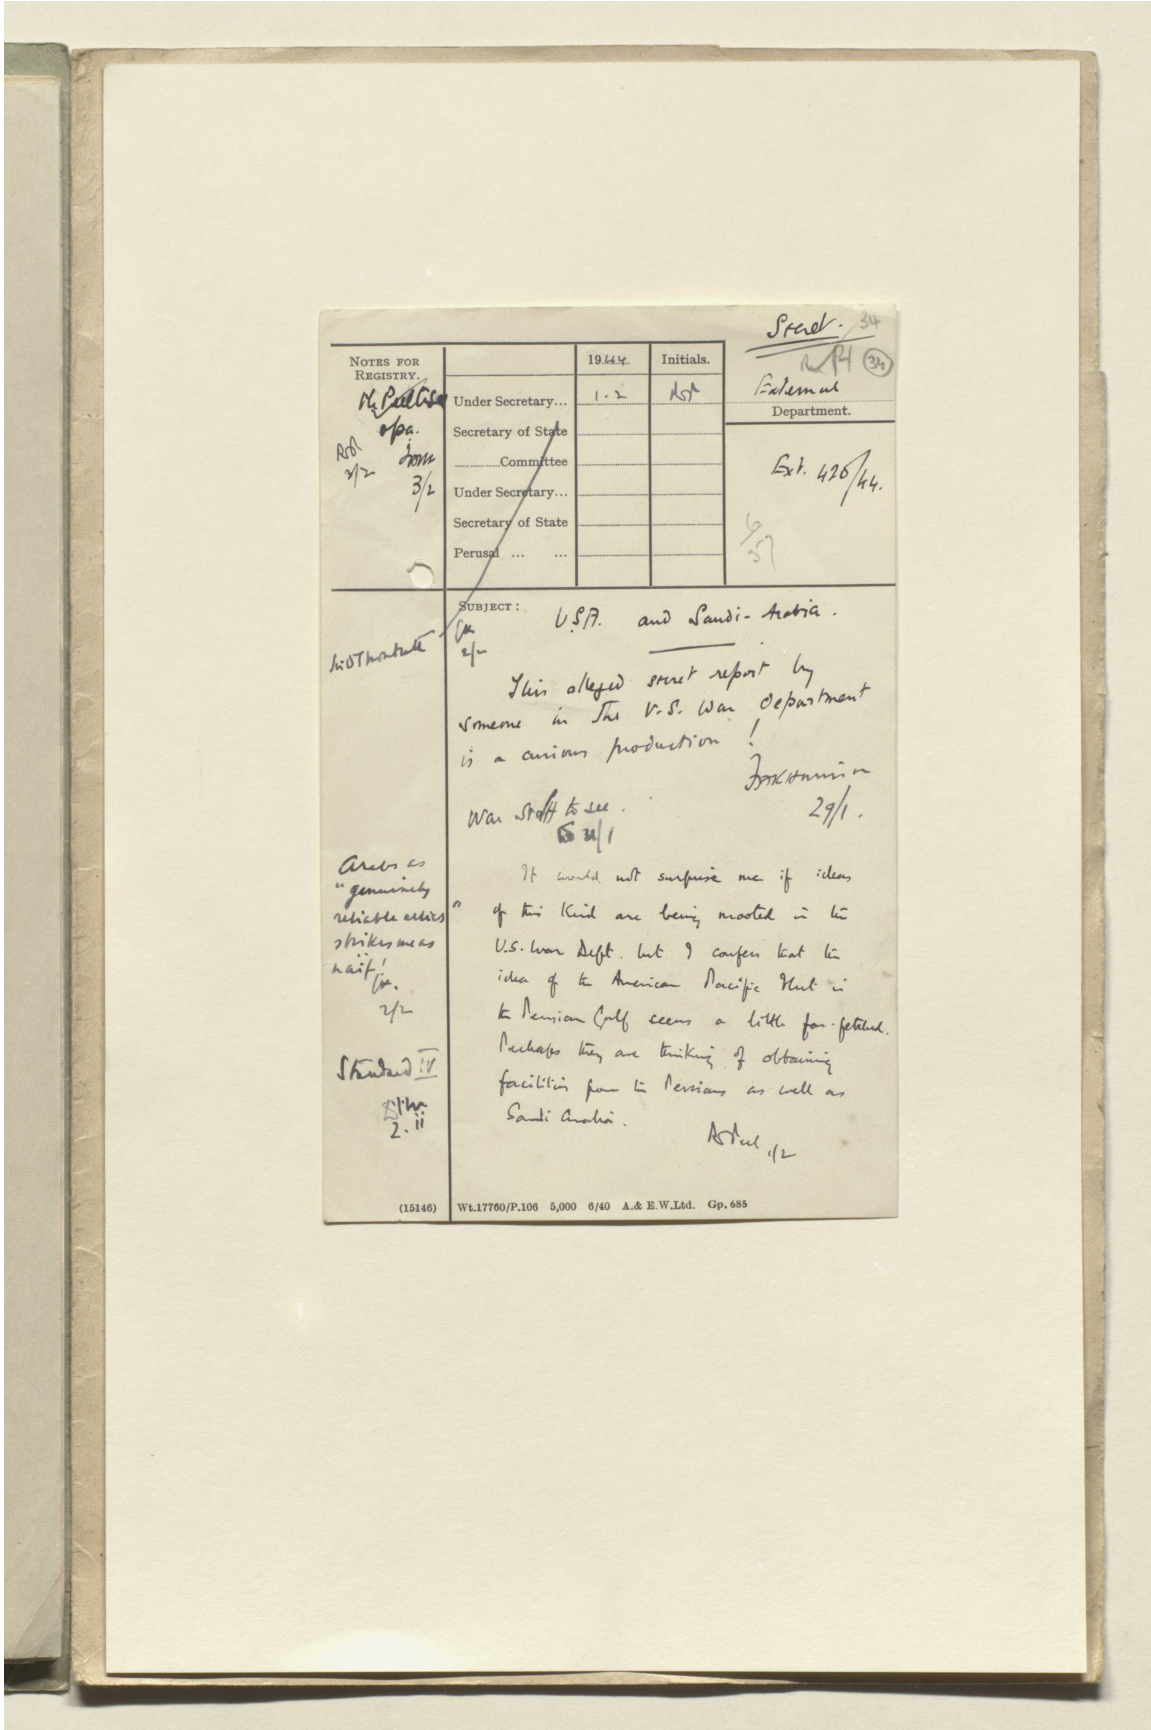 Secret. 34
34
NOTES FOR
REGISTRY.
1944
Initials.
External
Department.
Under Secretary... 1.2
opa.
Secretary of State
3/2
3/2
............Committee
Ext. 426/44.
Under Secretary...
Secretary of State
6/57
Perusal ... ...
SUBJECT: U.S.A. and Saudi-Arabia.
2/2
This alleged secret report by
someone in the U.S. War Department
is a curious production!
29/1.
War Staff to see.
31/1
Arabs as
"genuinely
reliable allies"
strikes me as
naïf!
2/2
It would not surprise me if ideas
of this kind are being mooted in the
U.S. War Dept. but I confess that the
idea of the American Pacific Fleet in
the Persian Gulf seems a little far-fetched.
Perhaps they are thinking of obtaining
facilities from the Persians as well as
Saudi Arabia.
RPeel 1/2
Standard IV
2.ii
(15146) Wt.17760/P.106 5,000 6/40 A.& E.W.Ltd. Gp.685